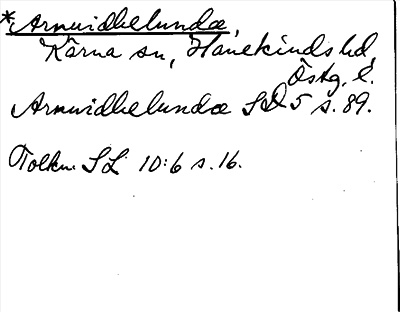 *Arnuidhelundæ,
Kärna sn, Hanekinds hd,
Östg. l.
Arnuidhelundæ SD 5 s. 89.
Tolkn. SL 10:6 s. 16.